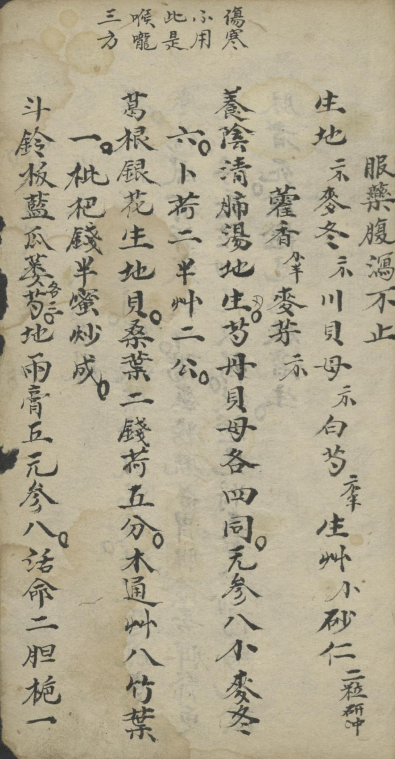 傷寒
不用
此是
喉嚨
三方
服藥腹瀉不止
生地 麥冬 川貝母 白芍 生艸 小 砂仁 二粒研冲
藿香 麥芽
養陰清肺湯地生 芍丹貝母各四同 元參八小麥冬
六 卜荷二半艸二公
葛根銀花生地貝 桑葉二錢荷五分 木通艸八竹葉
一 枇杷錢半蜜炒成
斗鈴板藍瓜蔞芍 各三 地兩膏五元參八 活命二胆梔一